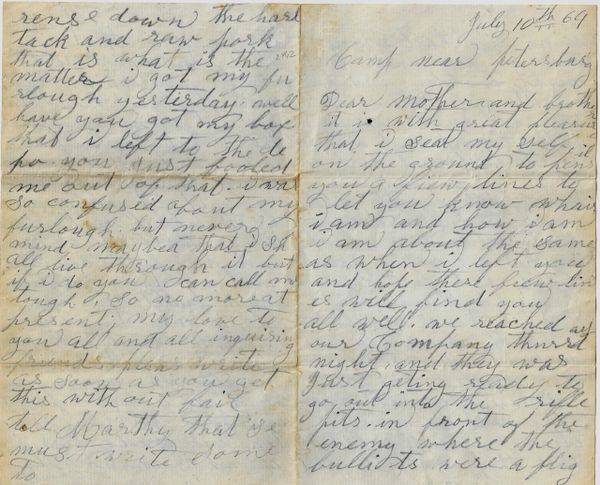 July 10th 69
Camp near petersburg
Dear Mother and brother
it is with great pleasure
that i seat my self
on the ground to pen
you a fiew lines to
let you know whair
i am and how i am
i am about the same
as when i left you
and hope these fiew lin
es will find you
all well. we reached
our Company thurst
night. and they was
Just geting ready to
go out into the rifle
pits. in front of the
enemy where the
bullits were a flig
rense down the hard
tack and raw pork
that is what is the
matter i got my fu
rlough yesterday. well
have you got my box
that i left to the de
po. you Just booled
me out of that. i was
so confused about my
furlough. but never
mind maybea that i sh
all live through it but
if i to you can call me
tough. So no more at
present, my love to
you all and all inquiring
friends. write
as soon as you get
this with out fail
tell Marthy that se
must write some
to